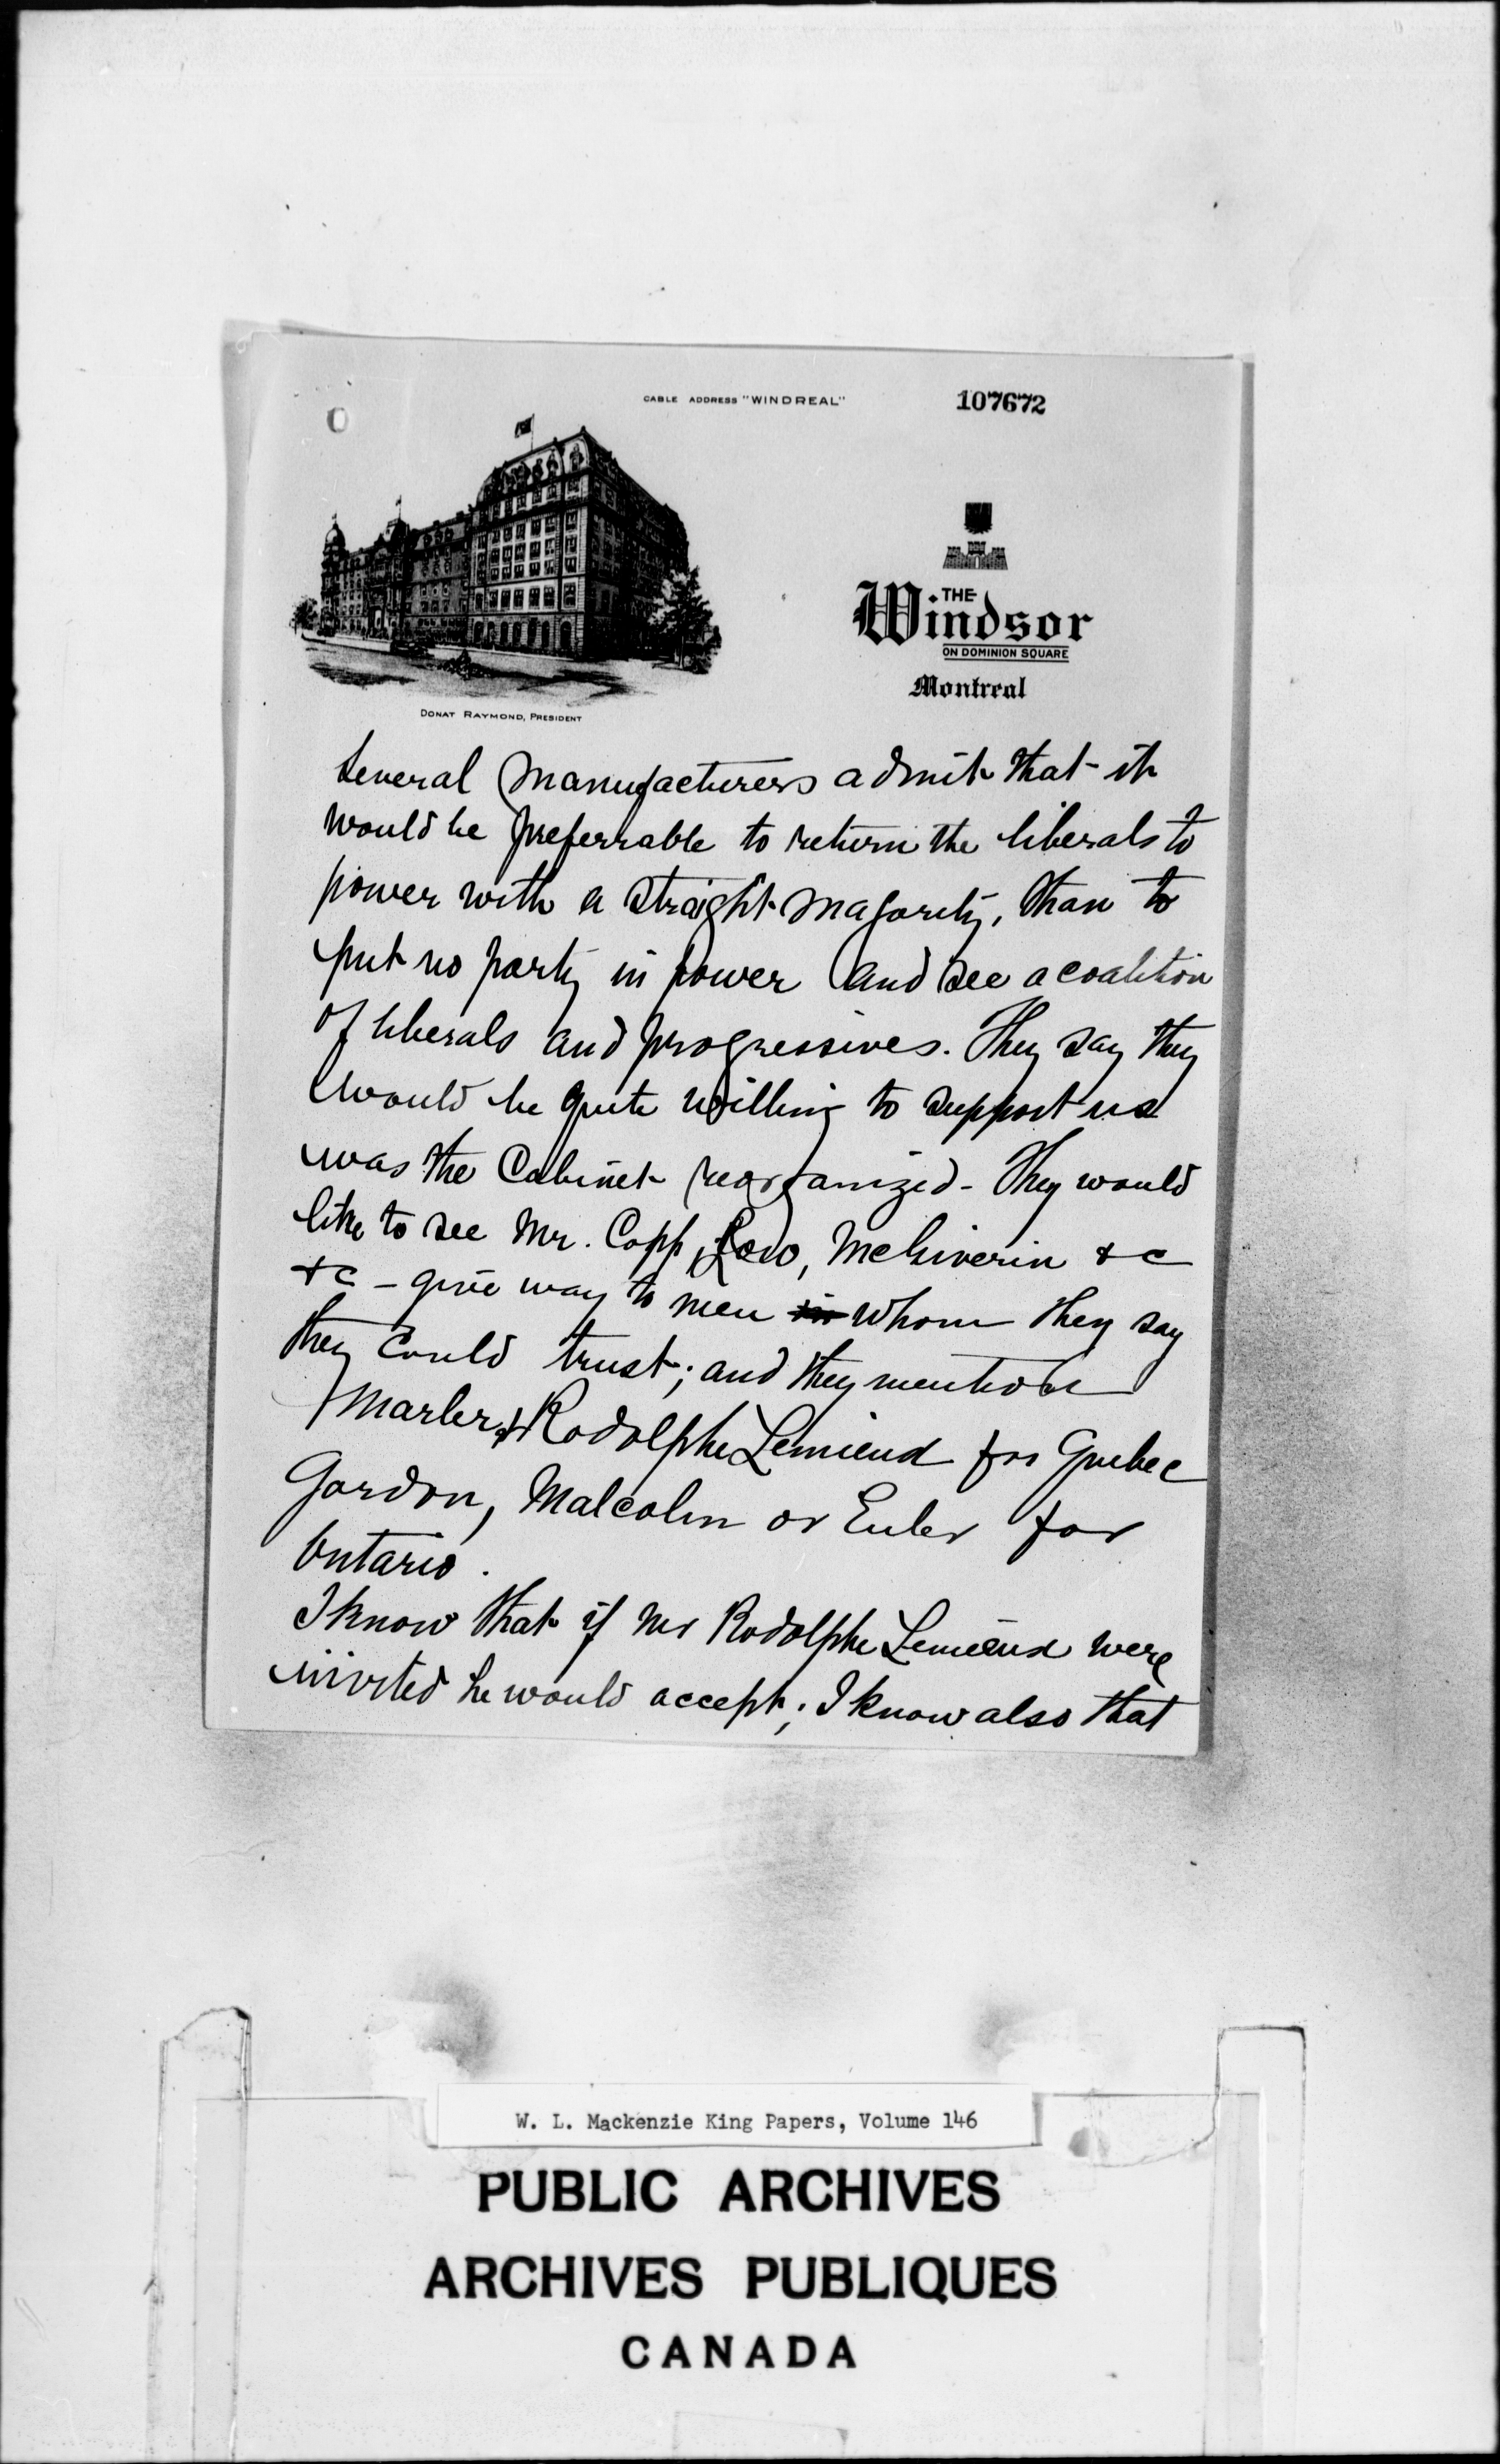 CABLE ADDRESS "WINDREAL"
107672
THE
Windsor
ON DOMINION SQUARE
Montreal
DONAT RAYMOND, PRESIDENT
Several manufacturers admit that it
would be preferrable to return the liberals to
power with a straight majority, than to
put no party in power and see a coalition
of liberals and progressives. They say they
would be quite willing to support us
was the Cabinet reorganized - They would
like to see Mr. Copp, Low, McGiverin &c
&c - give way to men whom they say
they could trust; and they mention
Marler & Rodolphe Lemieux for Quebec
Gordon, Malcolm or Euler for
Ontario.
I know that if Mr Rodolphe Lemieux were
invited he would accept; I know also that
W. L. Mackenzie King Papers, Volume 146
PUBLIC ARCHIVES
ARCHIVES PUBLIQUES
CANADA